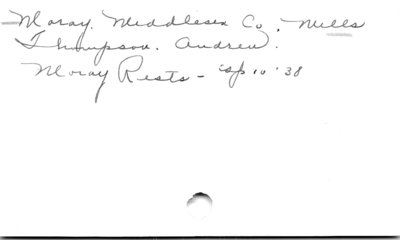 Moray. Middlesex Co. Mills
Thompson. Andrew.
Moray Rests - Sp 10 '38